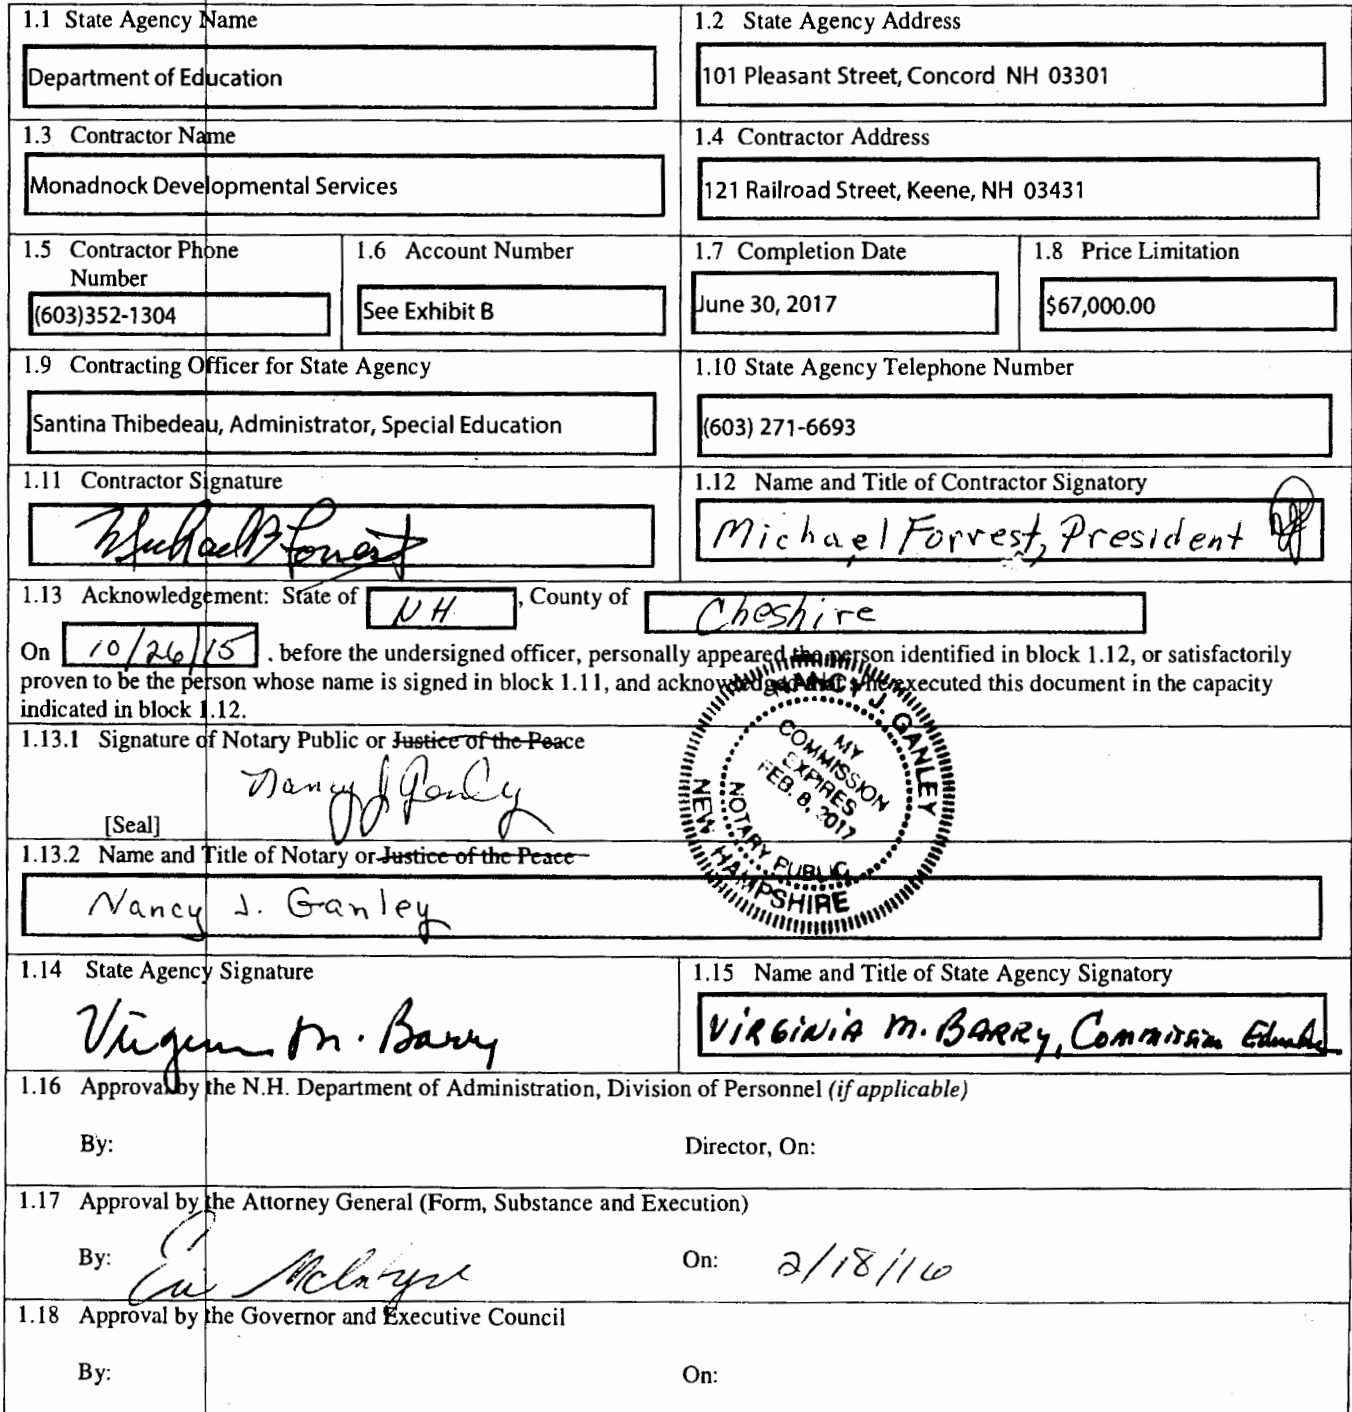 1.1 State Agency Name
Department of Education
1.2 State Agency Address
101 Pleasant Street, Concord NH 03301
1.3 Contractor Name
Monadnock Developmental Services
1.4 Contractor Address
121 Railroad Street, Keene, NH 03431
1.5 Contractor Phone
Number
(603)352-1304
1.6 Account Number
See Exhibit B
1.7 Completion Date
June 30, 2017
1.8 Price Limitation
$67,000.00
1.9 Contracting Officer for State Agency
Santina Thibedeau, Administrator, Special Education
1.10 State Agency Telephone Number
(603) 271-6693
1.11 Contractor Signature
Michael B Forrest
1.12 Name and Title of Contractor Signatory
Michael Forrest, President
1.13 Acknowledgement: State of NH, County of Cheshire
On 10/26/15, before the undersigned officer, personally appeared the person identified in block 1.12, or satisfactorily
proven to be the person whose name is signed in block 1.11, and acknowledged that s/he executed this document in the capacity
indicated in block 1.12.
1.13.1 Signature of Notary Public or Justice of the Peace
Nancy J Ganley
[Seal]
NANCY J. GANLEY
NEW HAMPSHIRE
NOTARY PUBLIC
MY
COMMISSION
EXPIRES
FEB. 8, 2017
1.13.2 Name and Title of Notary or Justice of the Peace
Nancy J. Ganley
1.14 State Agency Signature
Virginia M. Barry
1.15 Name and Title of State Agency Signatory
VIRGINIA M. BARRY, Commission
1.16 Approval by the N.H. Department of Administration, Division of Personnel (if applicable)
By:
Director, On:
1.17 Approval by the Attorney General (Form, Substance and Execution)
By: McIntyre
On: 2/18/16
1.18 Approval by the Governor and Executive Council
By:
On: